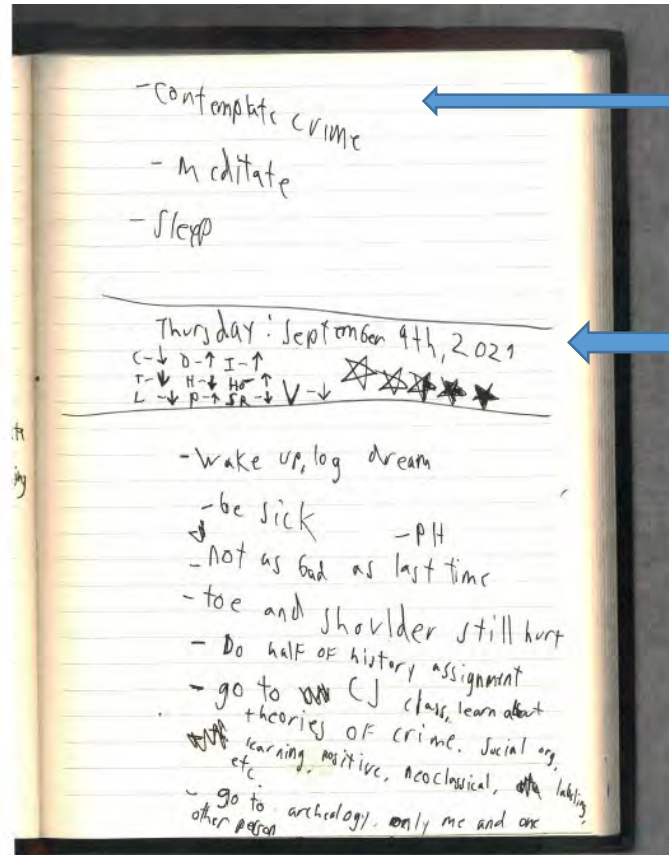 - Contemplate crime
- Meditate
- Sleep
Thursday: September 9th, 2021
C-↓ D-↑ I-↑
T-↓ H-↓ Ho-↑
L-↓ P-↑ SR-↓ V-↓
- Wake up, log dream
- be sick - PH
- not as bad as last time
- toe and shoulder still hurt
- Do half of history assignment
- go to CJ class, learn about
theories of crime. Social org,
learning, positive, neoclassical, labeling,
etc.
- go to archeology. only me and one
other person